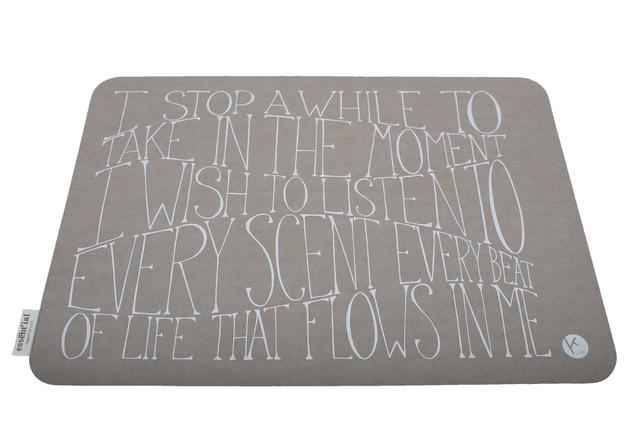 I STOP A WHILE TO
TAKE IN THE MOMENT
I WISH TO LISTEN TO
EVERY SCENT EVERY BEAT
OF LIFE THAT FLOWS IN ME
essent'ial
K